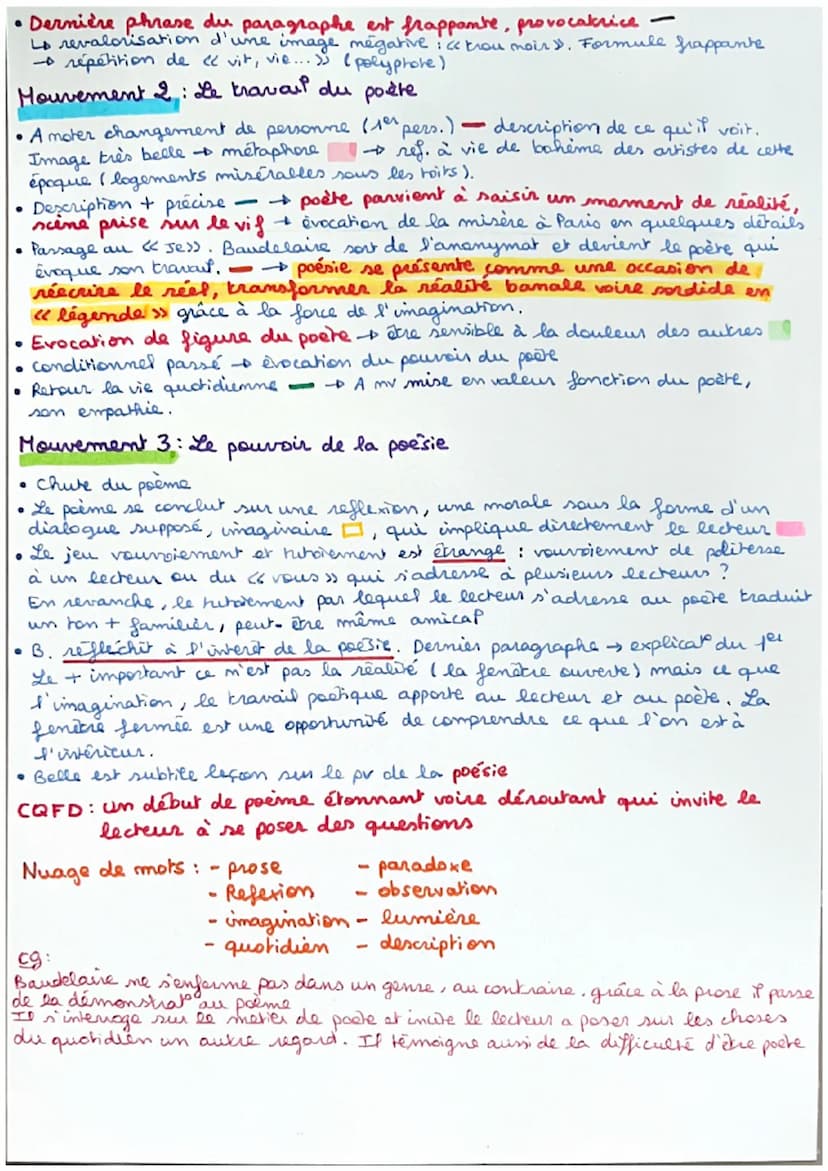 • Dernière phrase du paragraphe est frappante, provocatrice —
↳ revalorisation d'une image négative : << trou noir >>. Formule frappante
→ répétition de << vit, vie... >> (polyptote)
Mouvement 2 : Le travail du poète
• A noter changement de personne (1er pers.) — description de ce qu'il voit.
Image très belle → métaphore → réf. à vie de bohème des artistes de cette
époque (logements misérables sous les toits).
• Description + précise — → poète parvient à saisir un moment de réalité,
scène prise sur le vif + évocation de la misère à Paris en quelques détails
• Passage au << Je >>. Baudelaire sort de l'anonymat et devient le poète qui
évoque son travail. — → poésie se présente comme une occasion de
réécrire le réel, transformer la réalité banale voire sordide en
<< légende >> grâce à la force de l'imagination.
• Evocation de figure du poète → être sensible à la douleur des autres
• conditionnel passé → évocation du pouvoir du poète
• Retour la vie quotidienne — → A nv mise en valeur fonction du poète,
son empathie.
Mouvement 3 : Le pouvoir de la poésie
• Chute du poème
• Le poème se conclut sur une reflexion, une morale sous la forme d'un
dialogue supposé, imaginaire , qui implique directement le lecteur
• Le jeu vouvoiement et tutoiement est étrange : vouvoiement de politesse
à un lecteur ou du << vous >> qui s'adresse à plusieurs lecteurs ?
En revanche, le tutoiement par lequel le lecteur s'adresse au poète traduit
un ton + familier, peut-être même amical
• B. réfléchit à l'intérêt de la poésie. Dernier paragraphe → explicat° du 1er
Le + important ce n'est pas la réalité (la fenêtre ouverte) mais ce que
l'imagination, le travail poétique apporte au lecteur et au poète. La
fenêtre fermée est une opportunité de comprendre ce que l'on est à
l'intérieur.
• Belle est subtile leçon sur le pv de la poésie
CQFD : un début de poème étonnant voire déroutant qui invite le
lecteur à se poser des questions
Nuage de mots : - prose - paradoxe
- Refexion - observation
- imagination - lumière
- quotidien - description
cg:
Baudelaire ne s'enferme pas dans un genre, au contraire, grâce à la prose il passe
de la démonstrat° au poème
Il s'interroge sur le métier de poète et incite le lecteur a poser sur les choses
du quotidien un autre regard. Il témoigne aussi de la difficulté d'être poète